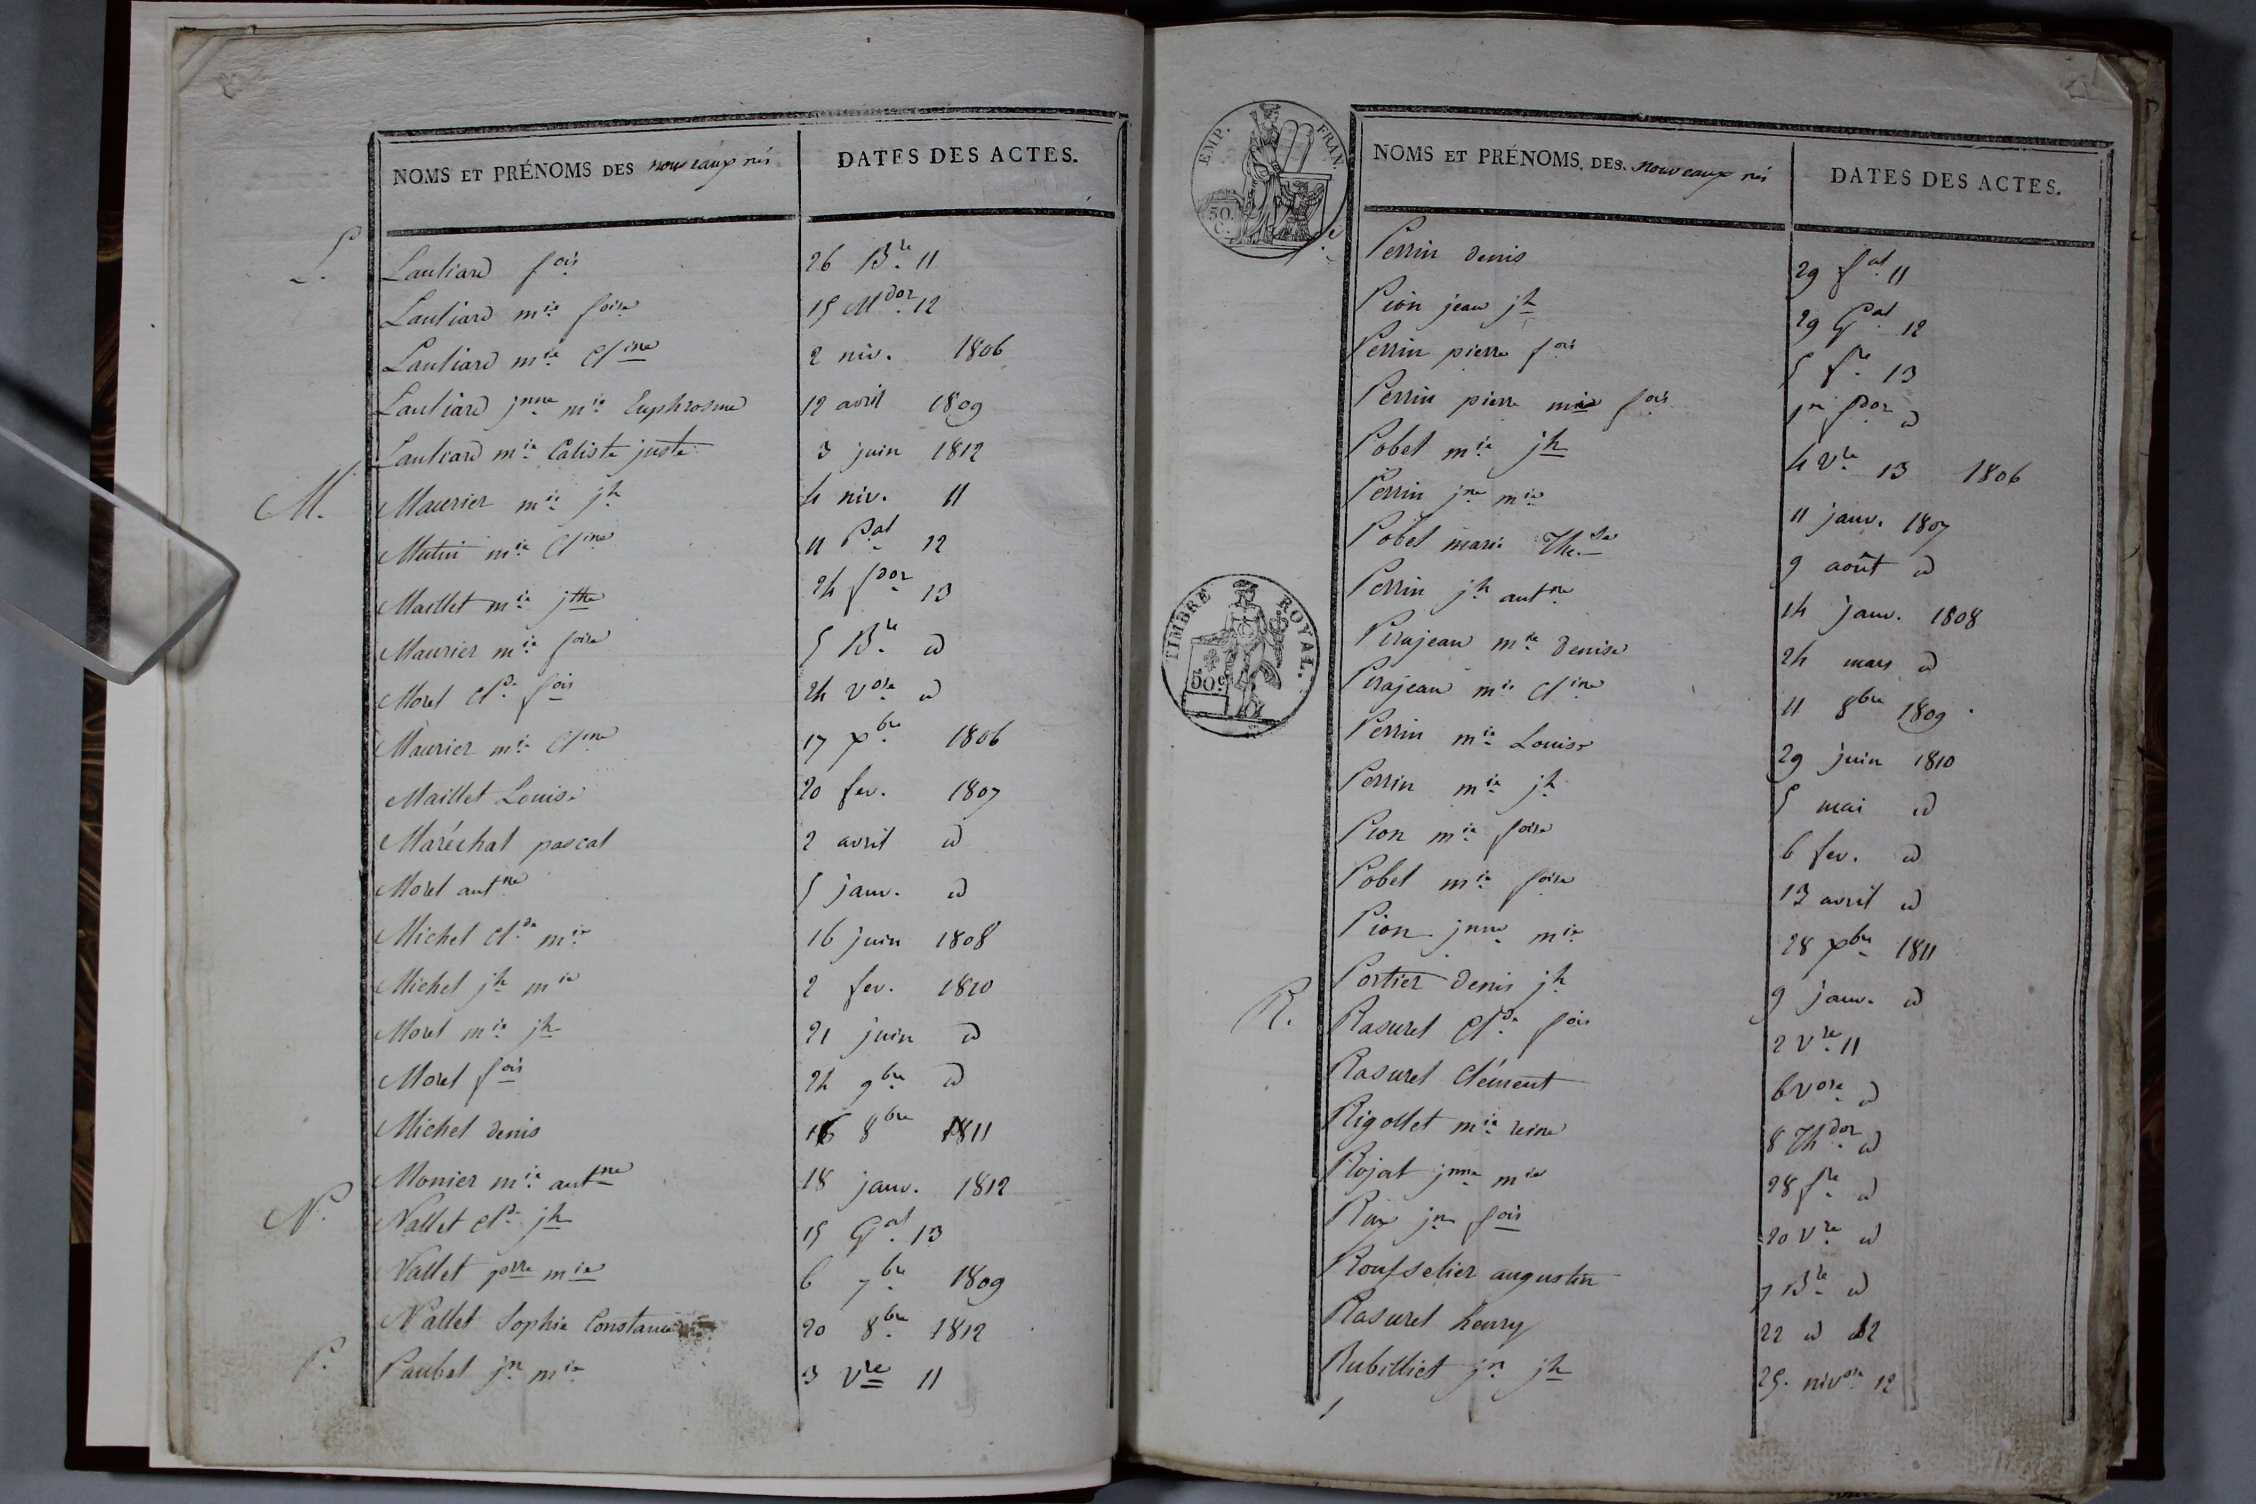 NOMS ET PRÉNOMS DES nouveaux nés DATES DES ACTES.
L. Lauliard fois 26 Bre 11
Lauliard mie foise 15 Mdor 12
Lauliard mie Cline 2 niv. 1806
Lauliard jnne mie Euphrosine 12 avril 1809
Lauliard mie Caliste juste 3 juin 1812
M. Maurier mie jh 4 niv. 11
Mutin mie Cline 11 Pal 12
Maillet mie jthe 24 fdor 13
Maurier mie foise 5 Bre d
Morel Clde fois 24 vose d
Maurier mie Cline 17 xbre 1806
Maillet Louise 20 fev. 1807
Maréchal pascal 2 avril d
Morel antne 5 janv. d
Michel Clde mie 16 juin 1808
Michel jh mie 2 fev. 1810
Morel mie jh 21 juin d
Morel fois 24 9bre d
Michel denis 16 8bre 1811
Monier mie antne 18 janv. 1812
N. Nallet Clde jh 15 Gal 13
Nallet pierre mie 6 7bre 1809
Nallet Sophie Constance 20 8bre 1812
P. Paubel jn mie 3 Vre 11
EMP. FRAN.
50. C.
TIMBRE ROYAL.
50c
NOMS ET PRÉNOMS, DES. nouveaux nés DATES DES ACTES.
P. Perrin denis 29 fal 11
Pion jean jh 29 Gal 12
Perrin pierre fois 5 fre 13
Perrin pierre mie fois 1er fdor d
Pobel mie jh 4 Vre 13 1806
Perrin jne mie 11 janv. 1807
Pobel marie Thse 9 août d
Perrin jh antne 14 janv. 1808
Pirajean mie denise 24 mars d
Pirajean mie Cline 11 8bre 1809
Perrin mie Louise 29 juin 1810
Perrin mie jh 5 mai d
Pion mie foise 6 fev. d
Pobel mie foise 13 avril d
Pion jnne mie 28 xbre 1811
Portier Denis jh 9 janv. d
R. Rasurel Clde fois 2 Vre 11
Rasurel Clément 6 Vose d
Rigollet mie reine 8 Thdor d
Rojat jnne mie 28 fre d
Rux jn fois 20 Vre d
Rousselier augustin 7 Bre d
Rasurel henry 22 d 12
Rubilliet jn jh 25. nivose 12